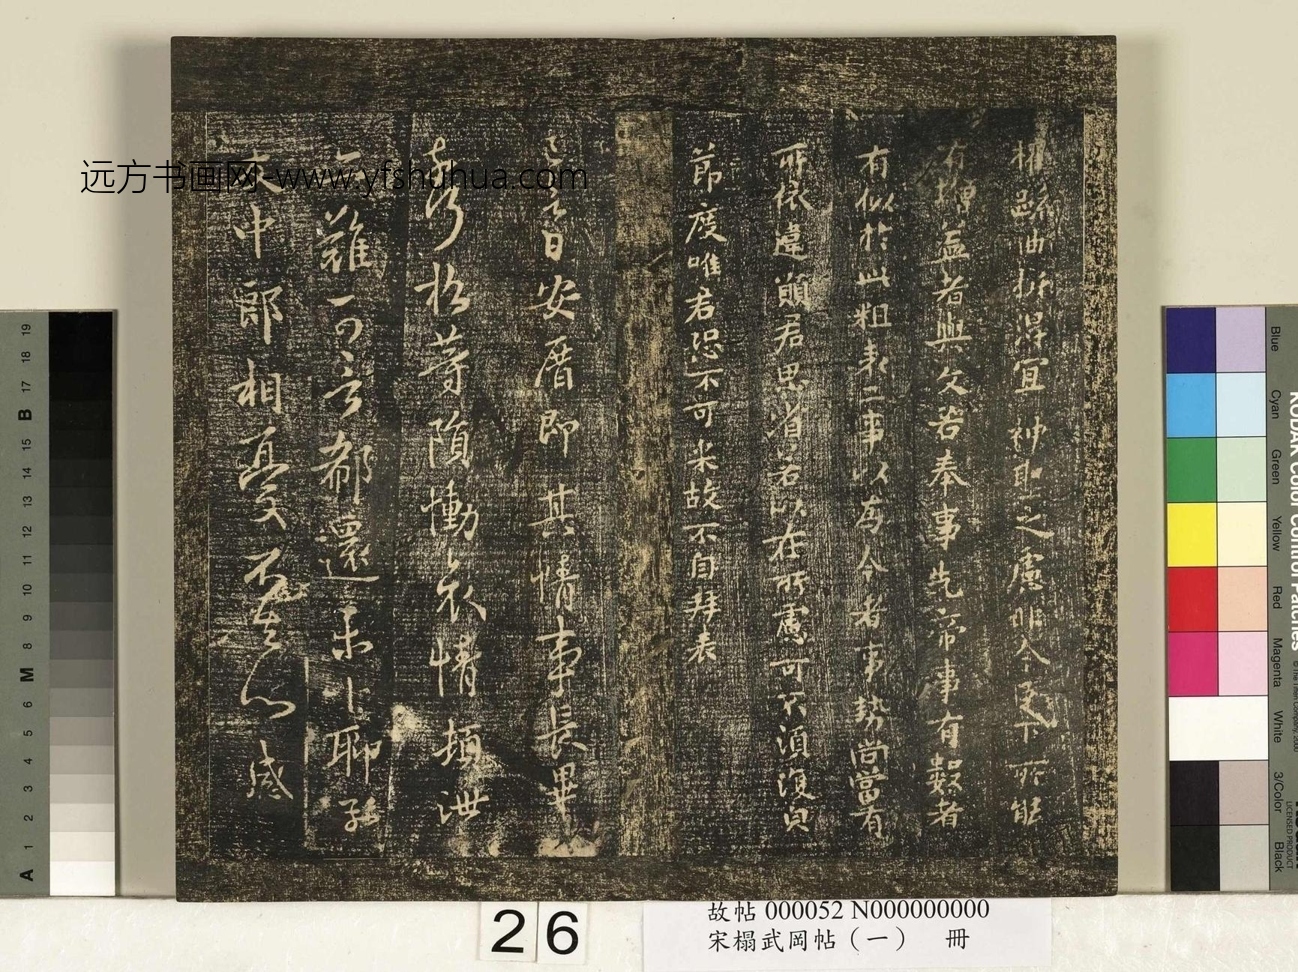 權疏曲折得宜神聖之慮非今臣下所能
有增益者與文若奉事先帝事有數者
有似於此粗表二事以為今者事勢尚當有
所依違願君思省若以在所慮可不須復白
節度唯君恐不可采故不自拜表
安厝即其情事長畢
等隕慟哀情頓泄
難可言都還未卜聊
中郎相憂不去心感
远方书画网-www.yfshuhua.com
26
故帖 000052 N000000000
宋榻武岡帖（一） 冊
KODAK Color Control Patches
Blue
Cyan
Green
Yellow
Red
Magenta
White
3/Color
Black
LICENSED PRODUCT
A 1 2 3 4 5 6 M 8 9 10 11 12 13 14 15 B 17 18 19